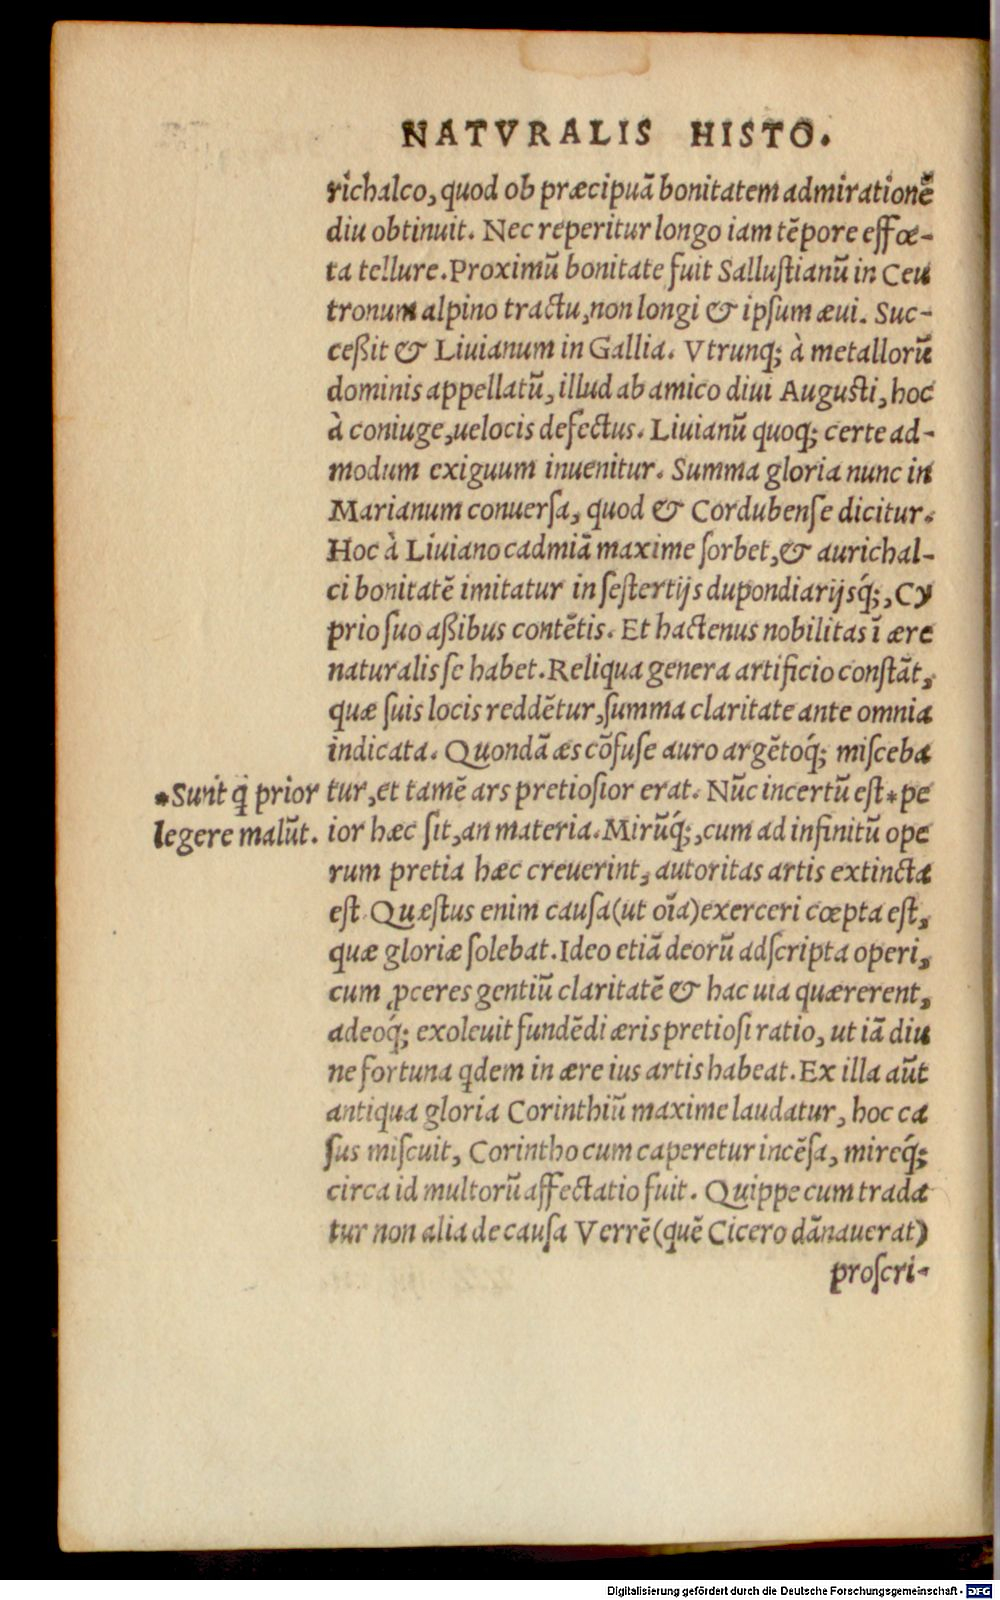 NATVRALIS HISTO.
richalco, quod ob præcipuā bonitatem admirationē
diu obtinuit. Nec reperitur longo iam tēpore effœ-
ta tellure. Proximū bonitate fuit Sallustianū in Ceu
tronum alpino tractu, non longi & ipsum æui. Suc-
ceßit & Liuianum in Gallia. Vtrunq; à metallorū
dominis appellatū, illud ab amico diui Augusti, hoc
à coniuge, uelocis defectus. Liuianū quoq; certe ad-
modum exiguum inuenitur. Summa gloria nunc in
Marianum conuersa, quod & Cordubense dicitur.
Hoc à Liuiano cadmiā maxime sorbet, & aurichal-
ci bonitatē imitatur in sestertijs dupondiarijsq́;, Cy
prio suo aßibus contētis. Et hactenus nobilitas ī ære
naturalis se habet. Reliqua genera artificio constāt,
quæ suis locis reddētur, summa claritate ante omnia
indicata. Quondā æs cōfuse auro argētoq́; misceba
tur, et tamē ars pretiosior erat. Nūc incertū est*pe
ior hæc sit, an materia. Mirūq́;, cum ad infinitū ope
rum pretia hæc creuerint, autoritas artis extincta
est. Quæstus enim causa (ut oīa) exerceri cœpta est,
quæ gloriæ solebat. Ideo etiā deorū adscripta operi,
cum ꝓceres gentiū claritatē & hac uia quærerent,
adeoq́; exoleuit fundēdi æris pretiosi ratio, ut iā diu
ne fortuna qͥdem in ære ius artis habeat. Ex illa aūt
antiqua gloria Corinthiū maxime laudatur, hoc ca
sus miscuit, Corintho cum caperetur incēsa, mireq́;
circa id multorū affectatio fuit. Quippe cum trada
tur non alia de causa Verrē (quē Cicero dānauerat)
proscri-
*Sunt qͥ prior
legere malūt.
Digitalisierung gefördert durch die Deutsche Forschungsgemeinschaft - DFG